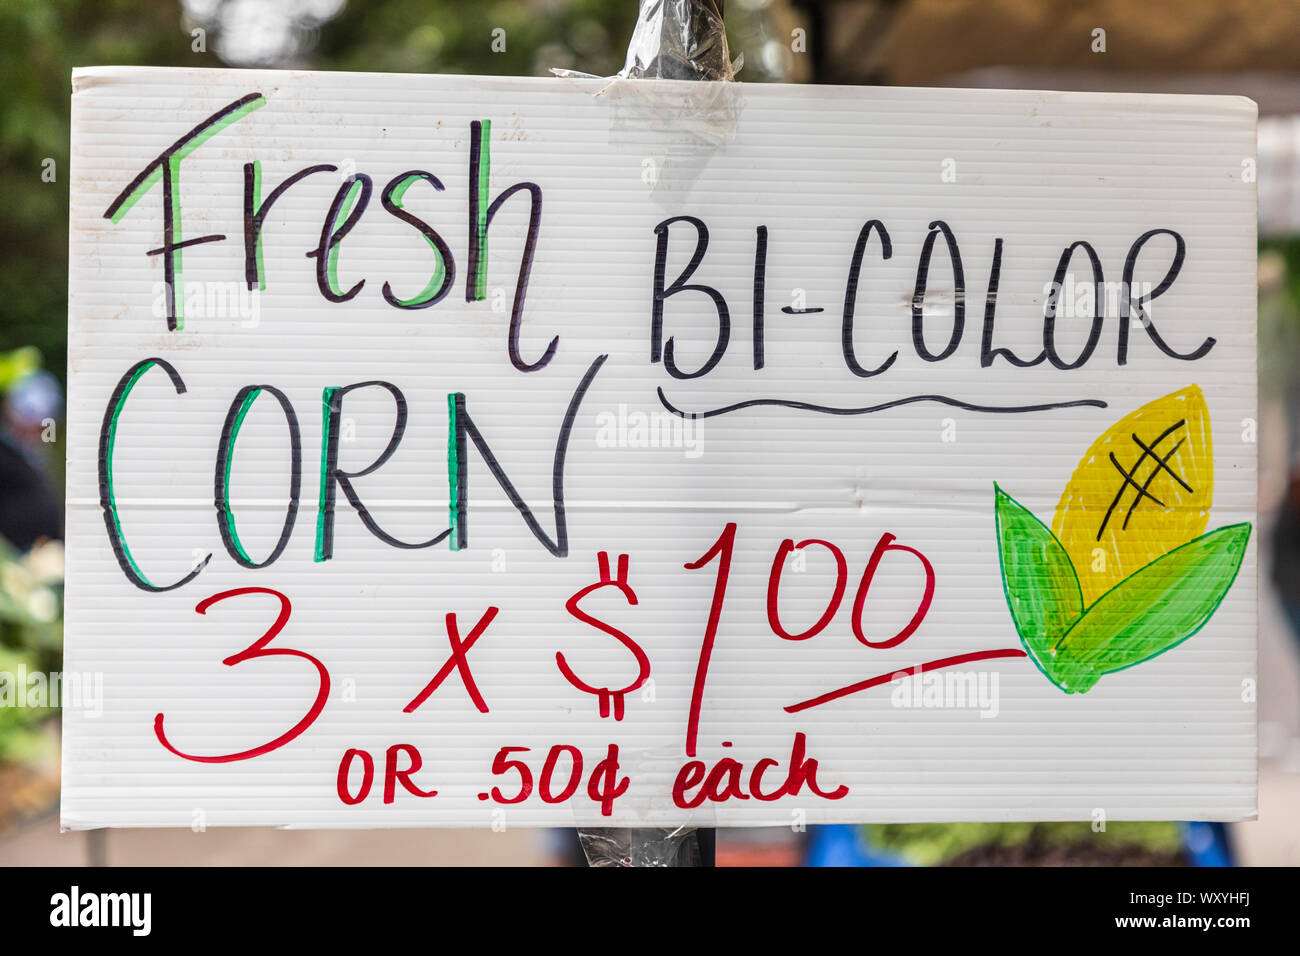 Fresh BI-COLOR
CORN
3 x $1.00
OR .50¢ each
alamy
Image ID: WXYHFJ
www.alamy.com